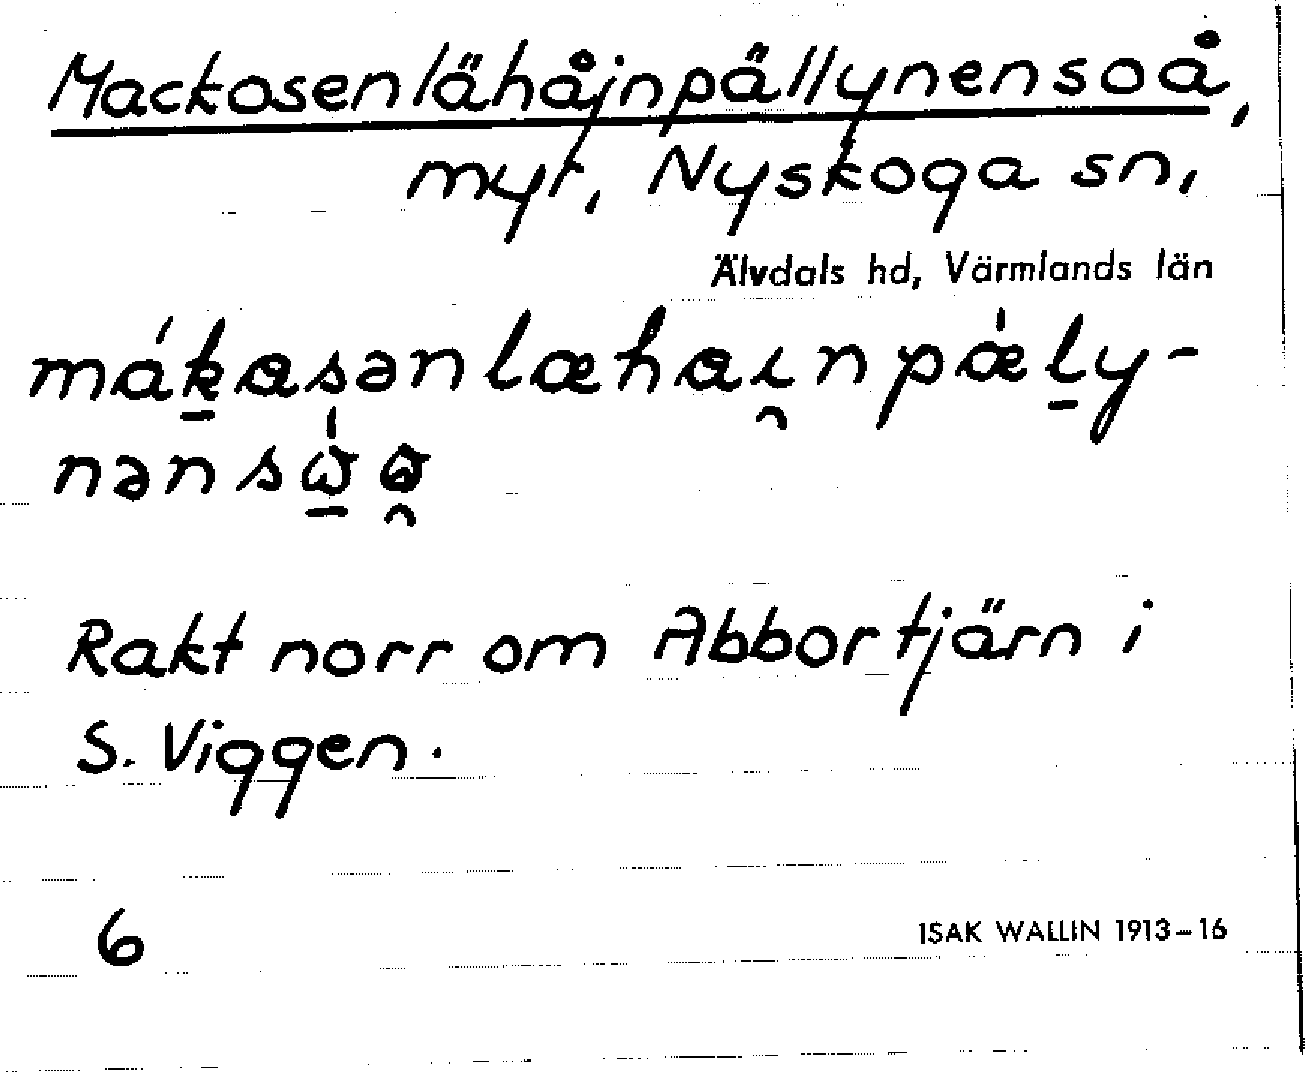 Mackosenlähåjnpällynensoå,
myr, Nyskoga sn,
Älvdals hd, Värmlands län
mák̠ɑsənlæhɑı̯npǽl̠y-
nənsώ̠ɑ̯
Rakt norr om Abbortjärn i
S. Viggen.
6
ISAK WALLIN 1913-16